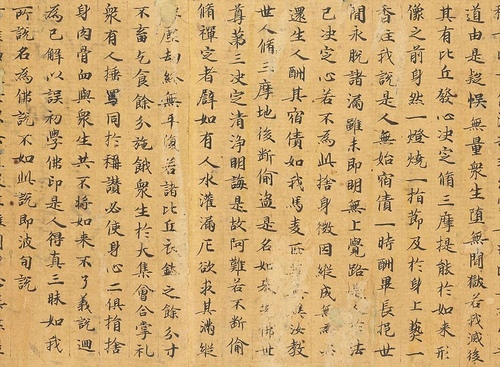 道由是疑悮無量衆生墮無間獄若我滅後
其有比丘發心決定脩三摩提能於如來形
像之前身然一燈燒一指節及於身上爇一
香炷我說是人無始宿債一時酬畢長挹世
間永脫諸漏雖未即明無上覺路於法
已決定心若不為此捨身微因縱成無
還生人酬其宿債如我馬麥正異汝教
世人脩三摩地後斷偷盜是名如佛世
尊第三決定清淨明誨是故阿難若不斷偷
脩禪定者譬如有人水灌漏巵欲求其滿縱
塵劫終無平復若諸比丘衣鉢之餘分寸
不畜乞食餘分施餓衆生於大集會合掌礼
衆有人捶詈同於稱讚必使身心二俱捐捨
身肉骨血與衆生共不將如來不了義說迴
為己解以誤初學佛印是人得真三昧如我
所說名為佛說不如此說即波旬說